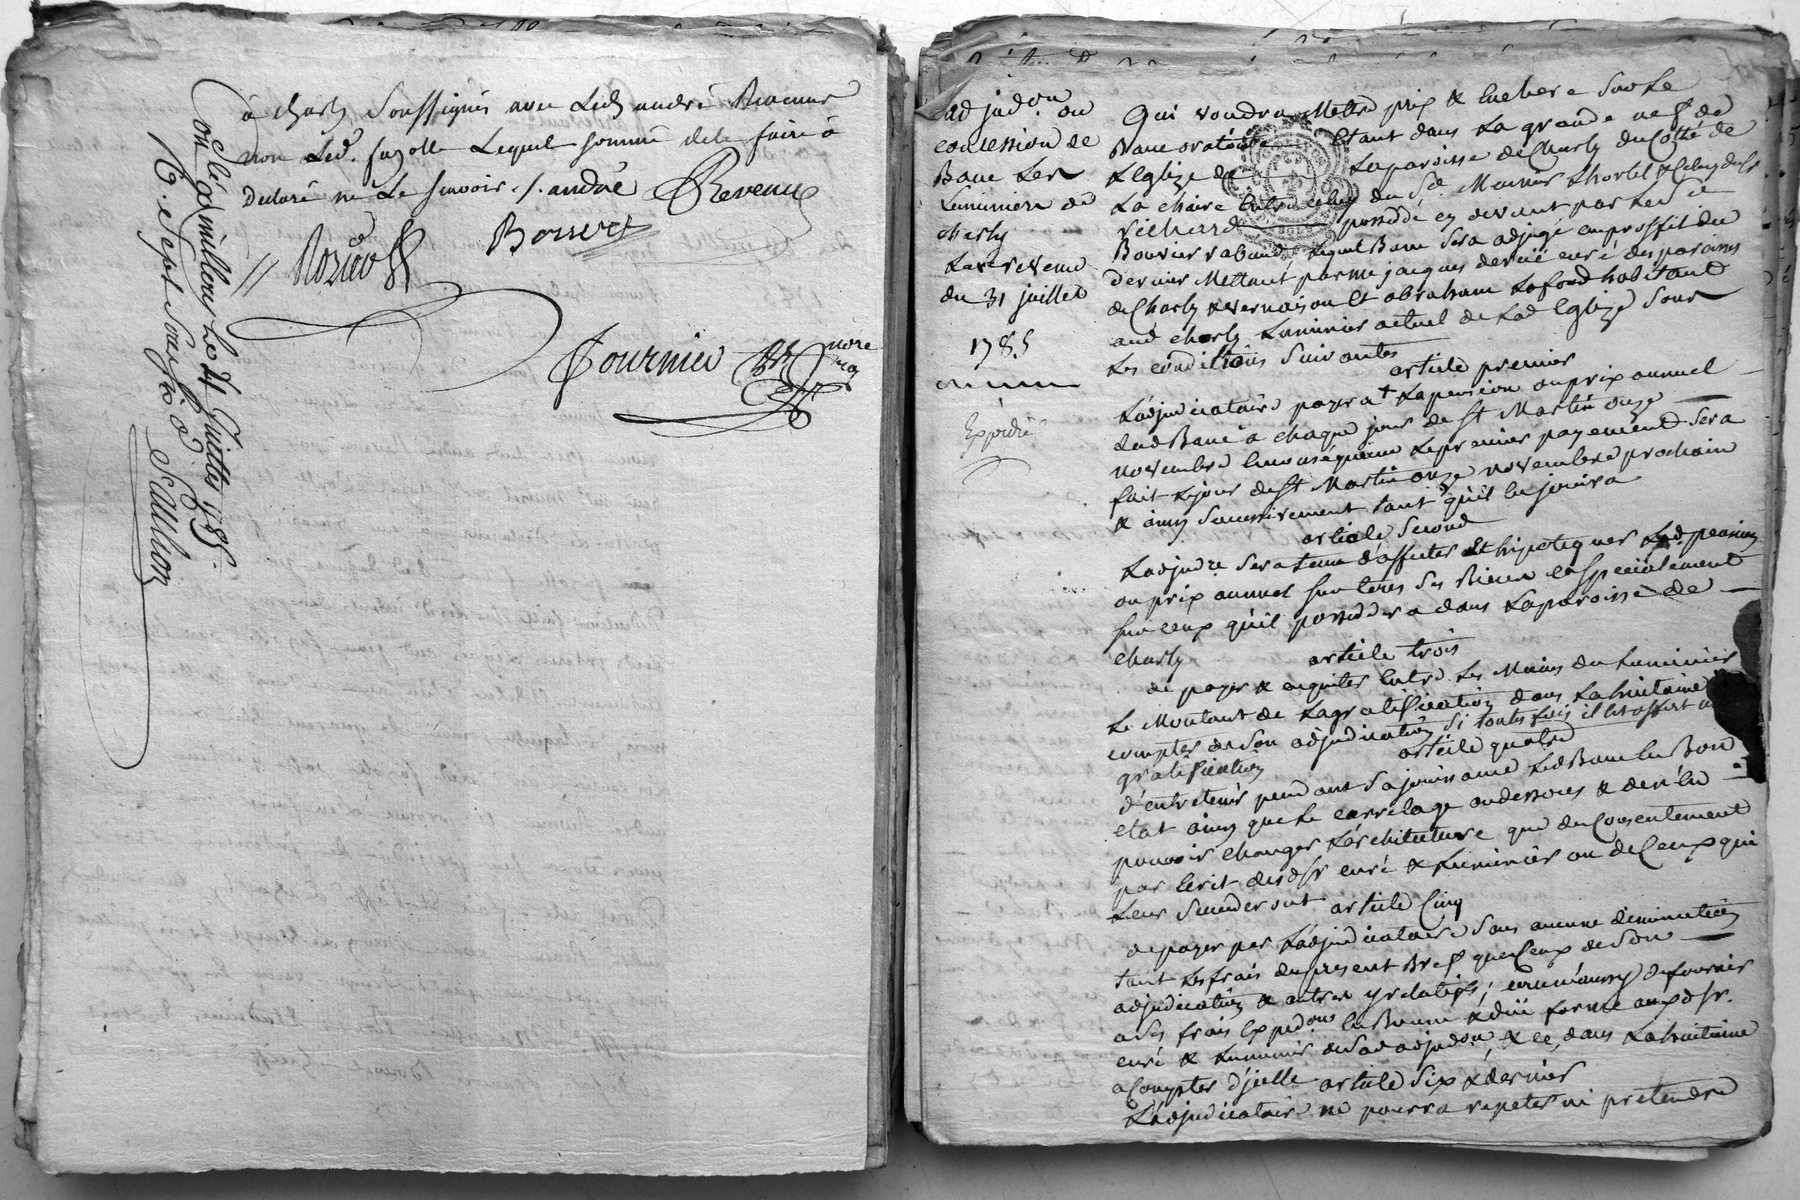 à charly Soussignés avec Led. andré Revenus
non Led. fayolle Lequel sommé de le faire à
Declaré ne Le Scavoir ./. andré Revenus
Bonnet
Fournier nore
ral
Con.lé a millery le 4 Juillet 1785.
R. Sept Sous six d.
Saulnier
adjudon ou
concession de
Banc Les
Luminiers de
charly
du 31 juillet
1785
Expédié
Qui voudra Mettre prix & Enchere Sur Le
Banc oratoire Etant dans La grande nef de
L'Eglize de La paroisse de Charly du Cotté de
La chaire Entre celuy du Sr. Meunier L'hortel & Celuy du Sr.
richard possedé cy devant par Led. Sr.
Bouvier rabaud, Lequel Banc Sera adjugé au proffit du
dernier Mettant par me jacques curé des paroisses
de Charly & Vernaison Et abraham Lafond habitant
aud. charly Luminier actuel de Lad. Eglize Sous
Les conditions Suivantes
article premier
L'adjudicataire payera La pension ou prix annuel
dud. Banc a chaque jour de St Martin onze
novembre En consequence Le premier payement Sera
fait Le jour de St Martin onze novembre prochain
& ainsy Successivement tant qu'il En jouira
article Second
L'adjudre Sera tenu d'affecter Et hipotequer Lad. pension
ou prix annuel Sur tous Ses Biens & Specialement
Sur ceux qu'il possedera dans La paroisse de
charly
article trois
de payer & acquiter Entre Les Mains du Luminier
Le Montant de La gratification dans La huitaine a
compter de Son adjudication Si toutefois il Est offert
gratification
article quatre
d'entretenir pendant Sa jouissance Led. Banc En Bon
etat ainsy que Le carrelage au dessous & de n'En
pouvoir changer L'architecture que du Consentement
par Ecrit desd. Sr curé & Luminier ou de Ceux qui
Leur Succederont article Cinq
de payer par L'adjudicataire Sans aucune diminution
tant Les frais du present Bref que Ceux de Son
adjudication & autres y relatifs, comme aussy de fournir
a Ses frais Expedon En Bonne & düe forme auxd. Sr.
curé & Luminier de Sad. adjudon, & ce dans La huitaine
a Compter d'jcelle article Six & dernier
L'adjudicataire ne pourra repeter ni pretendre